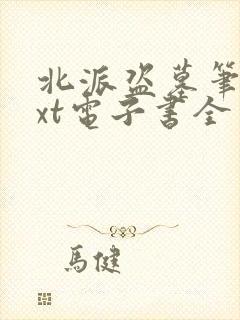 北派盜墓筆
xt電子書全
馬健